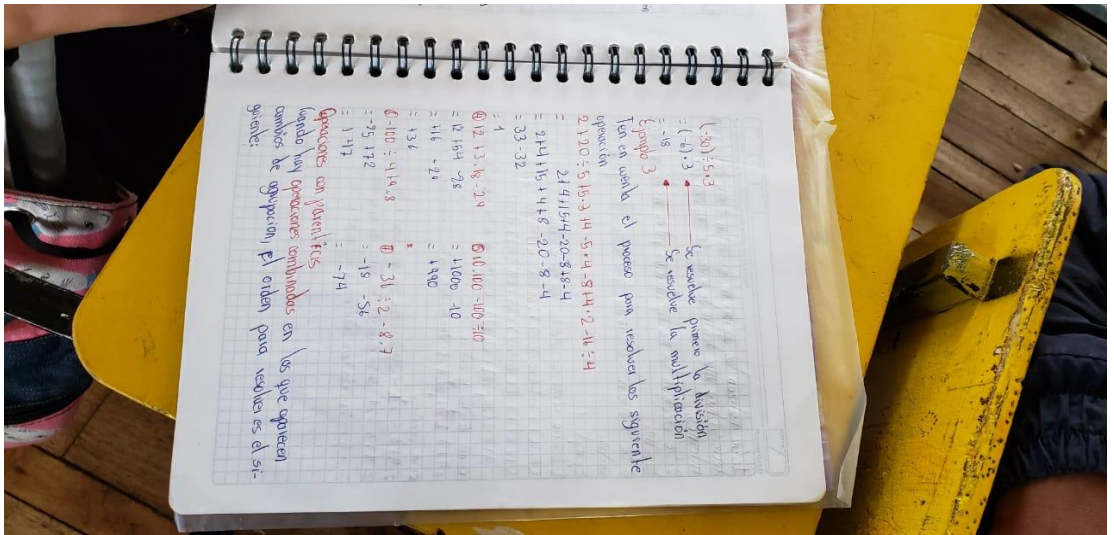 (-30) ÷ 5·3
= (-6)·3 Se resuelve primero la división
= -18 Se resuelve la multiplicación
Ejemplo 3
Ten en cuenta el proceso para resolver las siguiente
operación
2 + 20 ÷ 5 + 5·3 + 4 - 5·4 - 8 + 4·2 - 16 ÷ 4
= 2+4+15+4-20-8+8-4
= 2+4+15+4+8-20-8-4
= 33-32
= 1
12 + 3·18 - 2
= 12 + 54 -20
= +16 -20
= +36
10·100 - 100 ÷ 10
= +1000 -10
= +990
-100 ÷ 4 + 9·8
= -25 + 72
= +47
- 36 ÷ 2 - 8·7
= -18 -56
= -74
Operaciones con paréntesis
Cuando hay operaciones combinadas en las que aparecen
cambios de agrupación, el orden para resolver es el si-
guiente: